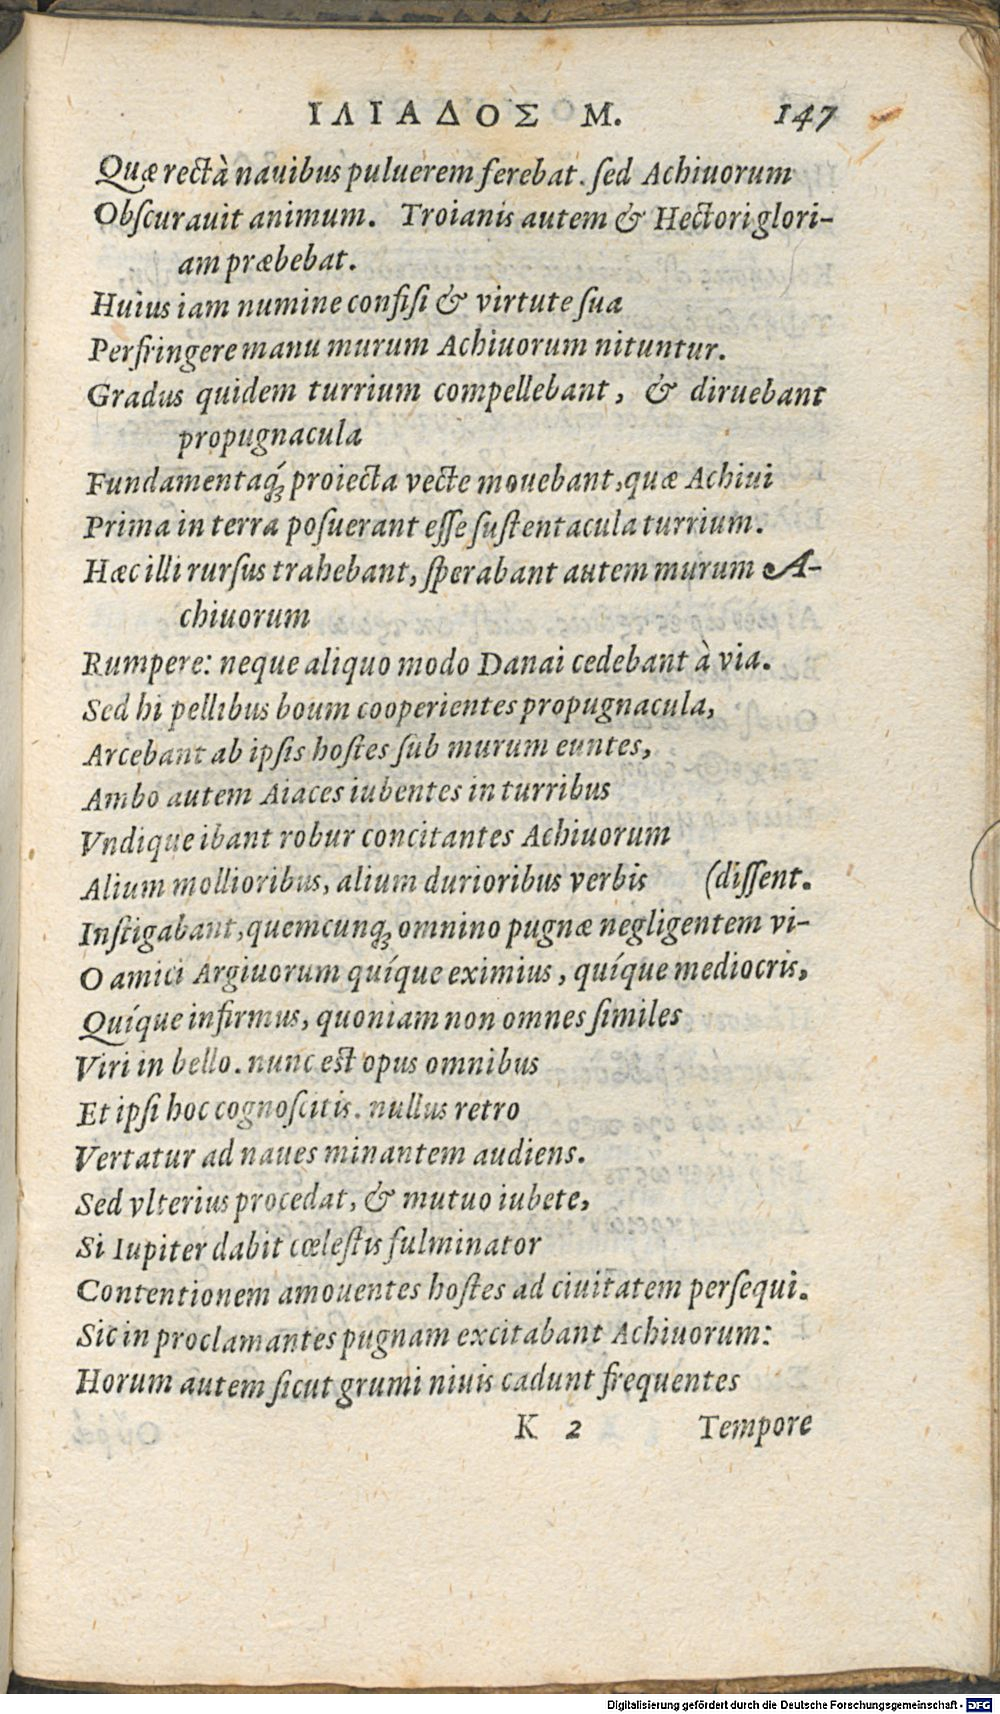 ΙΛΙΑΔΟΣ Μ. 147
Quæ rectà nauibus puluerem ferebat. ſed Achiuorum
Obſcurauit animum. Troianis autem & Hectori glori-
am præbebat.
Huius iam numine confiſi & virtute ſua
Perfringere manu murum Achiuorum nituntur.
Gradus quidem turrium compellebant, & diruebant
propugnacula
Fundamentaq́ꝫ proiecta vecte mouebant, quæ Achiui
Prima in terra poſuerant eſſe ſuſtentacula turrium.
Hæc illi rurſus trahebant, ſperabant autem murum A-
chiuorum
Rumpere: neque aliquo modo Danai cedebant à via.
Sed hi pellibus boum cooperientes propugnacula,
Arcebant ab ipſis hoſtes ſub murum euntes,
Ambo autem Aiaces iubentes in turribus
Vndique ibant robur concitantes Achiuorum
Alium mollioribus, alium durioribus verbis (diſſent.
Inſtigabant, quemcunqꝫ omnino pugnæ negligentem vi-
O amici Argiuorum quíque eximius, quíque mediocris,
Quíque infirmus, quoniam non omnes ſimiles
Viri in bello. nunc eſt opus omnibus
Et ipſi hoc cognoſcitis. nullus retro
Vertatur ad naues minantem audiens.
Sed vlterius procedat, & mutuo iubete,
Si Iupiter dabit cœleſtis fulminator
Contentionem amouentes hoſtes ad ciuitatem perſequi.
Sic in proclamantes pugnam excitabant Achiuorum:
Horum autem ſicut grumi niuis cadunt frequentes
K 2 Tempore
Digitalisierung gefördert durch die Deutsche Forschungsgemeinschaft - DFG